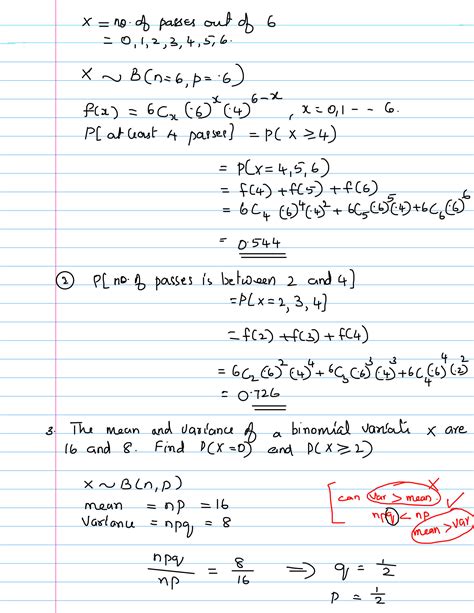 X = no. of passes out of 6
= 0, 1, 2, 3, 4, 5, 6.
X ~ B(n=6, p=·6)
f(x) = 6Cx (·6)^x (·4)^6-x , x = 0, 1 - - 6.
P[at least 4 passes] = P(X ≥ 4)
= P(X = 4, 5, 6)
= f(4) + f(5) + f(6)
= 6C4 (·6)^4 (·4)^2 + 6C5 (·6)^5 (·4) + 6C6 (·6)^6
= 0.544
② P[no. of passes is between 2 and 4]
= P[X = 2, 3, 4]
= f(2) + f(3) + f(4)
= 6C2 (·6)^2 (·4)^4 + 6C3 (·6)^3 (·4)^3 + 6C4 (·6)^4 (·2)^2
= 0.726
3. The mean and variance of a binomial variate X are
16 and 8. Find P(X=0) and P(X ≥ 2)
X ~ B(n, p)
mean = np = 16
Variance = npq = 8
can var > mean. ✗
npq < np ✓
mean > var
npq/np = 8/16 ⟹ q = 1/2
p = 1/2